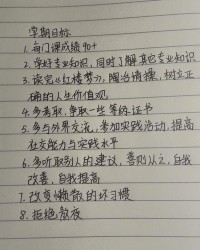 学期目标
1. 每门课成绩90+
2. 学好专业知识，同时了解其它专业知识
3. 读完《红楼梦》，陶冶情操，树立正
确的人生价值观
4. 多考取、争取一些等级证书
5. 多与外界交流，参加实践活动，提高
社交能力与实践水平
6. 多听取别人的建议，善则从之，自我
改善，自我提高
7. 改变懒散的坏习惯
8. 拒绝熬夜